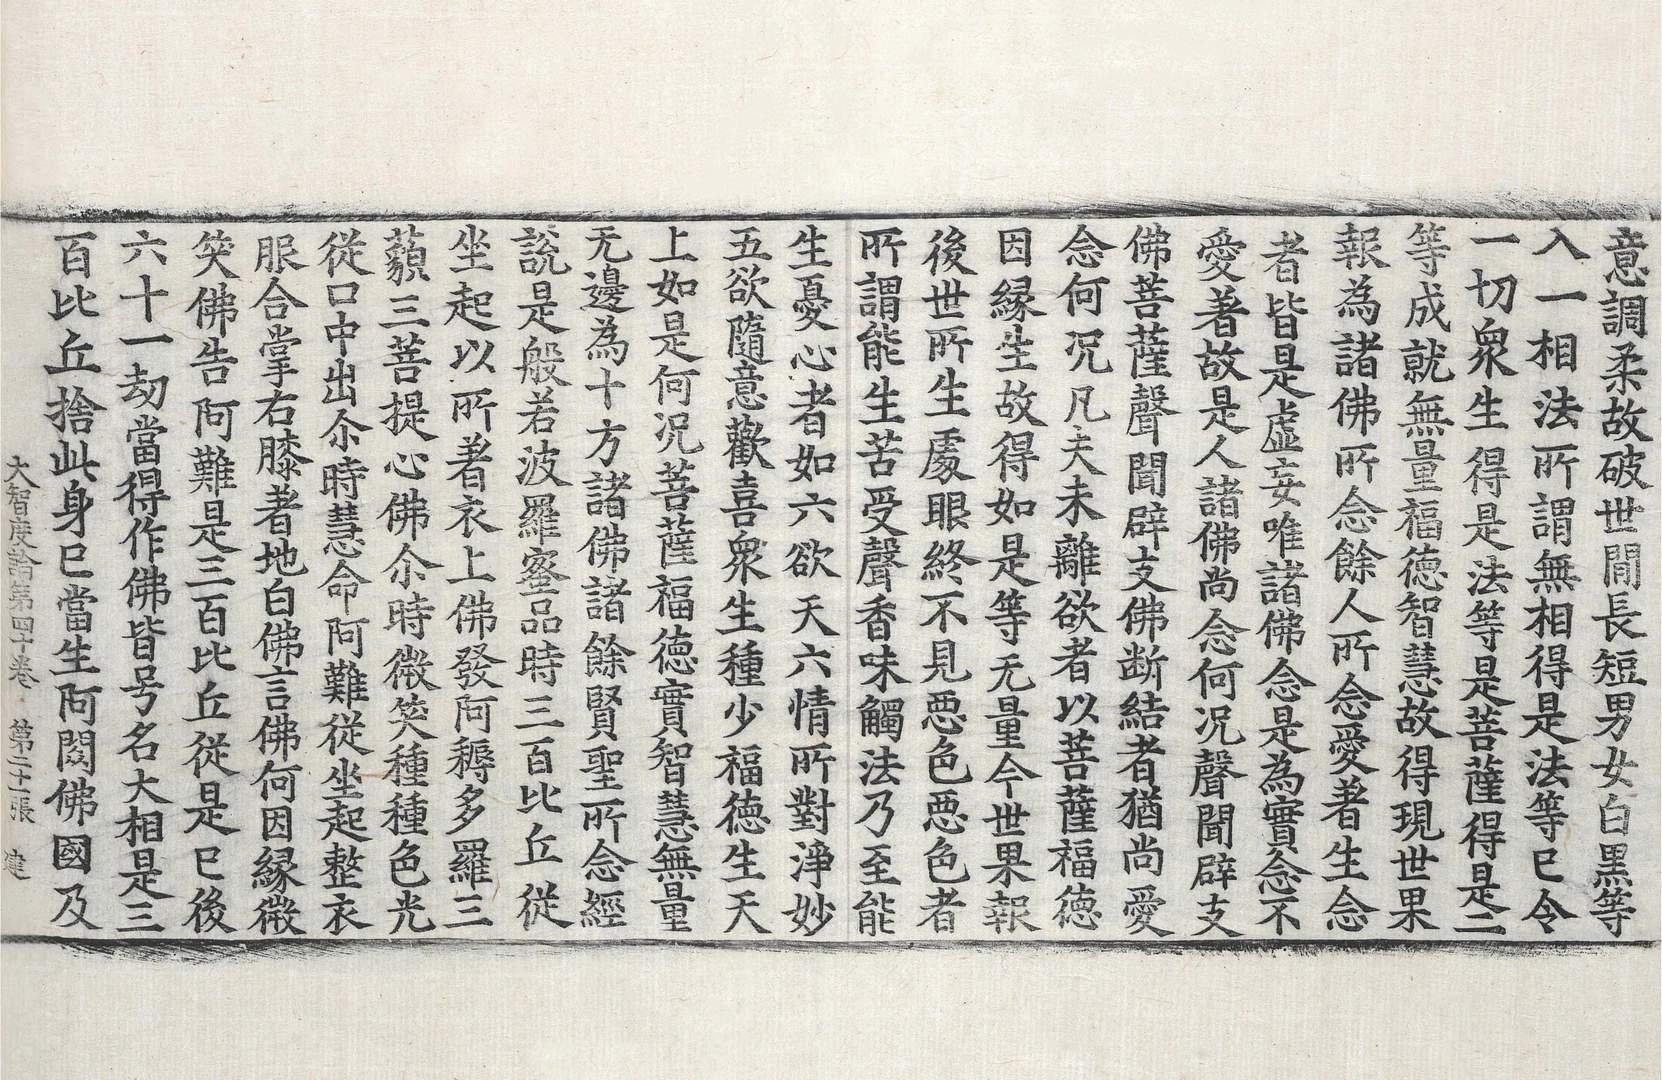 意調柔故破世閒長短男女白黑等
入一相法所謂無相得是法等已令
一切衆生得是法等是菩薩得是二
等成就無量福德智慧故得現世果
報為諸佛所念餘人所念愛著生念
者皆是虛妄唯諸佛念是為實念不
愛著故是人諸佛尚念何況聲聞辟支
佛菩薩聲聞辟支佛断結者猶尚愛
念何況凡夫未離欲者以菩薩福德
因緣生故得如是等无量今世果報
後世所生處眼終不見惡色惡色者
所謂能生苦受聲香味觸法乃至能
生憂心者如六欲天六情所對淨妙
五欲隨意歡喜衆生種少福德生天
上如是何況菩薩福德實智慧無量
无邊為十方諸佛諸餘賢聖所念經
說是般若波羅蜜品時三百比丘從
坐起以所著衣上佛發阿耨多羅三
藐三菩提心佛尒時微笑種種色光
從口中出尒時慧命阿難從坐起整衣
服合掌右膝著地白佛言佛何因緣微
笑佛告阿難是三百比丘從是已後
六十一劫當得作佛皆号名大相是三
百比丘捨此身已當生阿閦佛國及
大智度論第四十卷 第二十一張 建